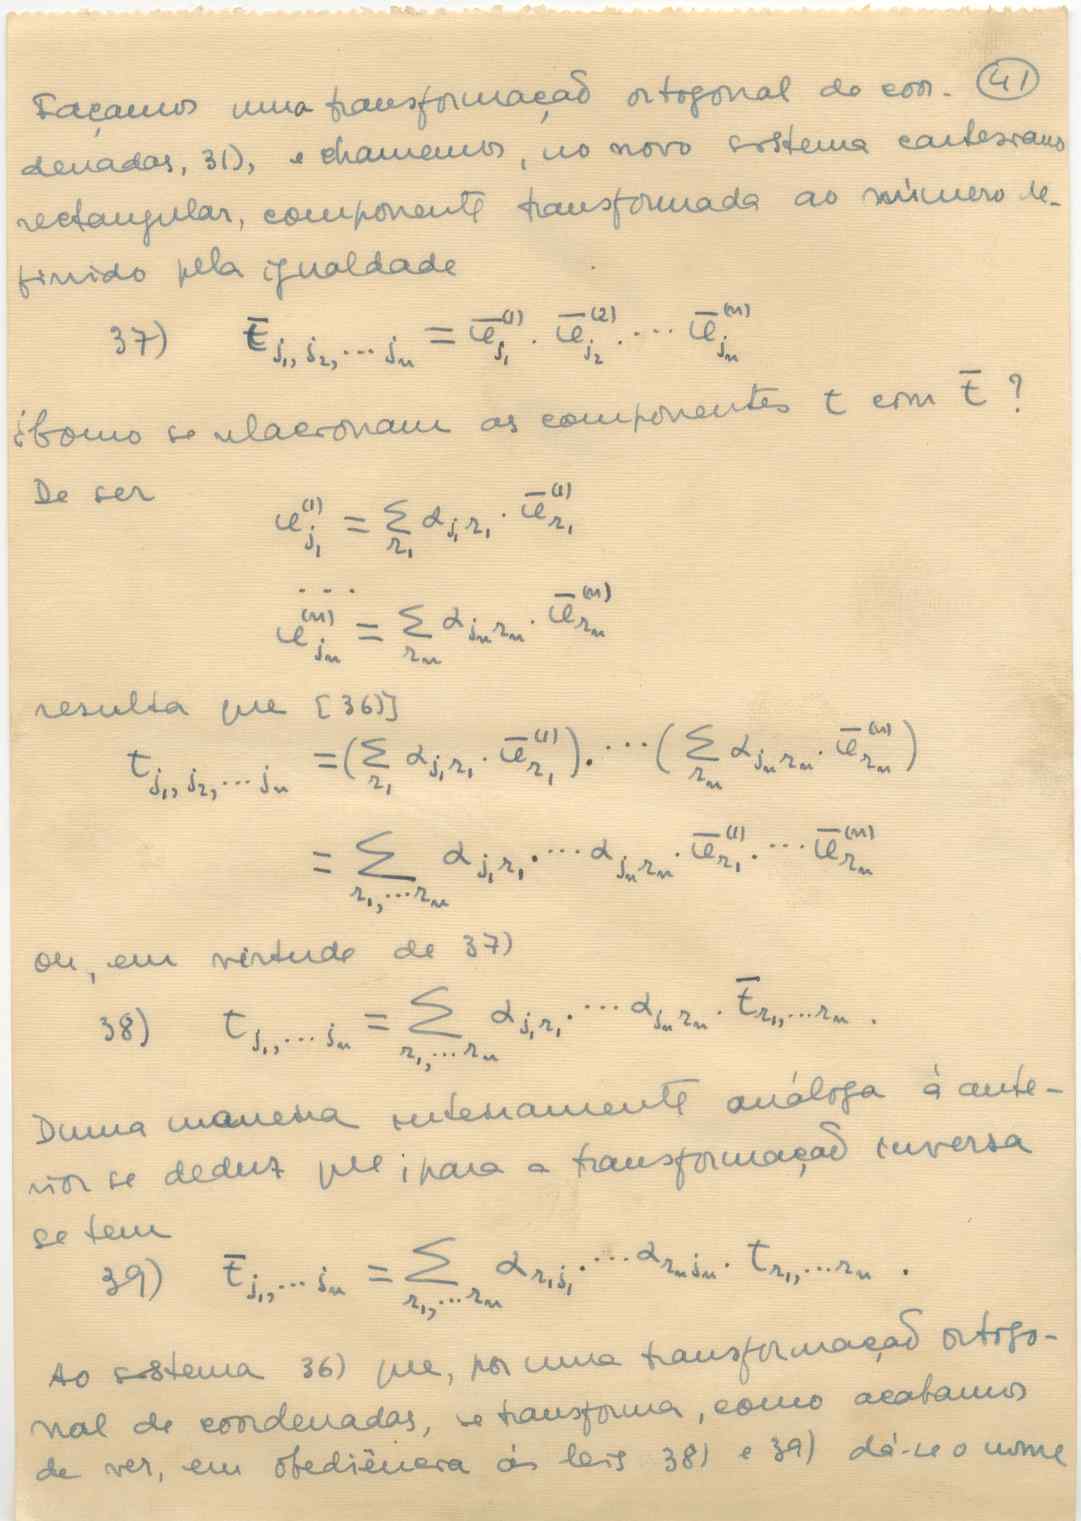 Façamos uma transformação ortogonal de coor- (41)
denadas, 31), e chamemos, no novo sistema cartesiano
rectangular, componente transformada ao número de-
finido pela igualdade
37) t̄_{j₁, j₂, ... jₙ} = ū^{(1)}_{j₁} · ū^{(2)}_{j₂} · ... ū^{(n)}_{jₙ}
¿Como se relacionam as componentes t com t̄ ?
De ser
u^{(1)}_{j₁} = Σ_{r₁} α_{j₁r₁} · ū^{(1)}_{r₁}
. . .
u^{(n)}_{jₙ} = Σ_{rₙ} α_{jₙrₙ} · ū^{(n)}_{rₙ}
resulta que [36)]
t_{j₁, j₂, ... jₙ} = (Σ_{r₁} α_{j₁r₁} · ū^{(1)}_{r₁}) · ... (Σ_{rₙ} α_{jₙrₙ} · ū^{(n)}_{rₙ})
= Σ_{r₁, ... rₙ} α_{j₁r₁} · ... α_{jₙrₙ} · ū^{(1)}_{r₁} · ... ū^{(n)}_{rₙ}
ou, em virtude de 37)
38) t_{j₁, ... jₙ} = Σ_{r₁, ... rₙ} α_{j₁r₁} · ... α_{jₙrₙ} · t̄_{r₁, ... rₙ} .
Duma maneira inteiramente análoga à ante-
rior se deduz que, para a transformação inversa
se tem
39) t̄_{j₁, ... jₙ} = Σ_{r₁, ... rₙ} α_{r₁j₁} · ... α_{rₙjₙ} · t_{r₁, ... rₙ} .
Ao sistema 36) que, por uma transformação ortogo-
nal de coordenadas, se transforma, como acabamos
de ver, em obediência às leis 38) e 39) dá-se o nome